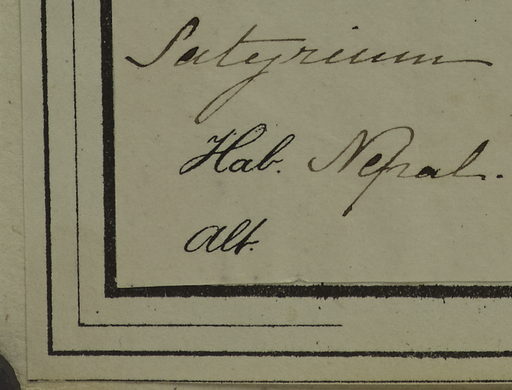 Satyrium
Hab. Nepal.
Alt.